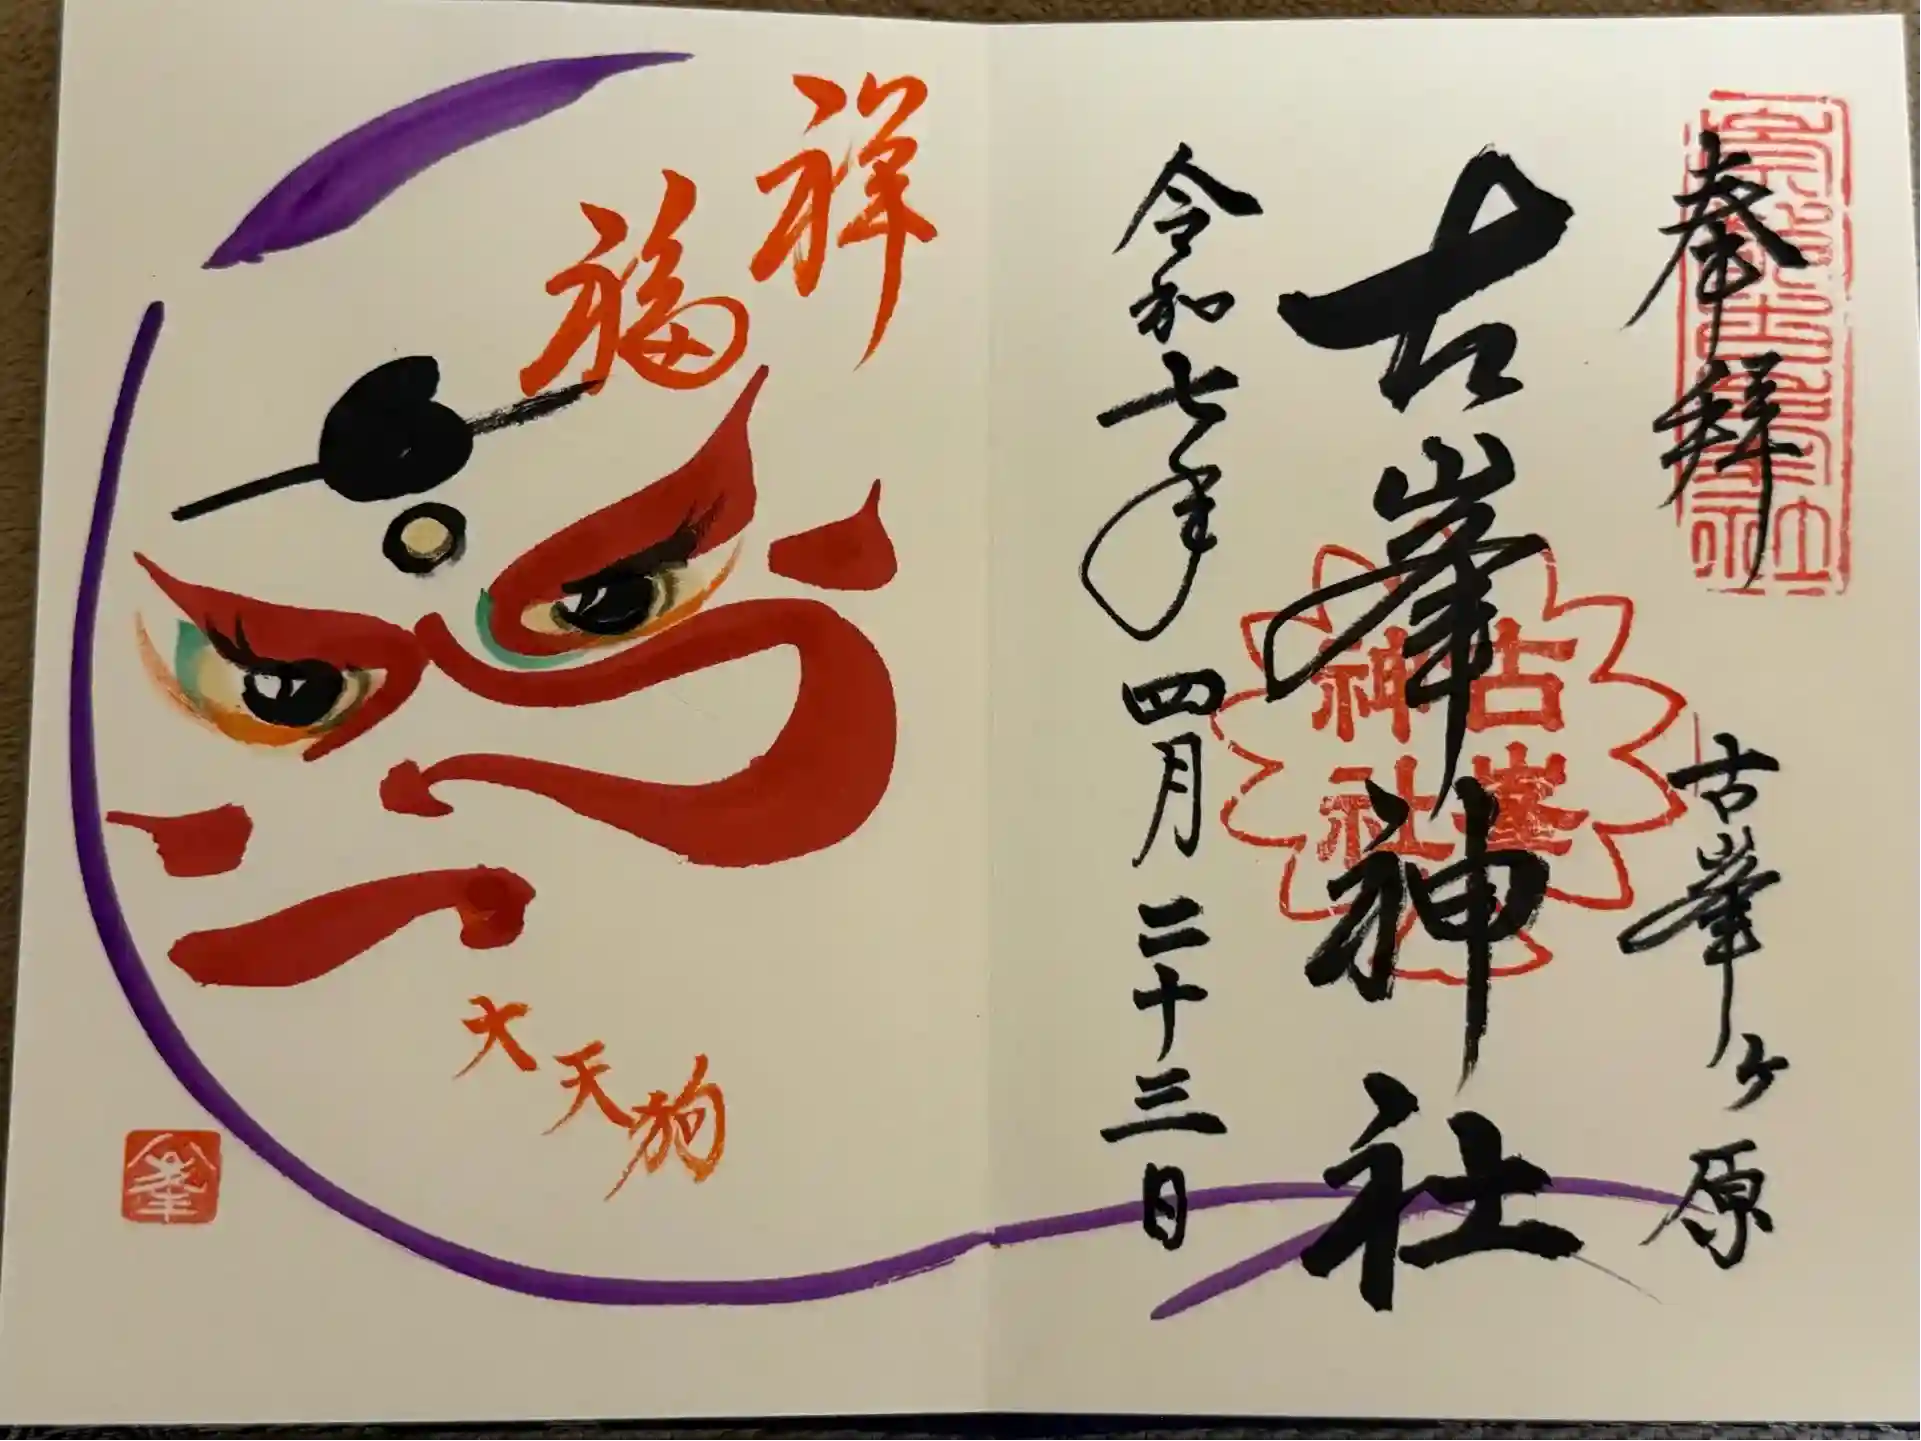 奉拝
古峯ヶ原
古峯神社
古峯
神社
令和七年四月二十三日
祥福
大天狗
峯